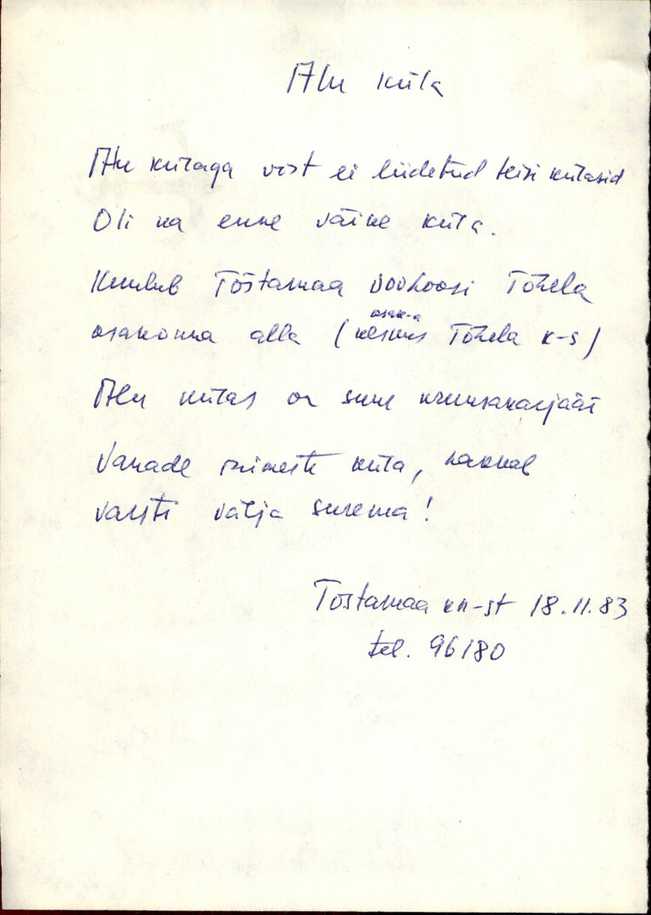 Alu küla
Alu külaga vist ei liidetud teisi külasid
Oli ka enne väike küla.
Kuulub Tõstamaa sovhoosi Tõhela
osak-a
osakonna alla (keskus Tõhela k-s)
Alu külas on suur kruusakarjäär
Vanade inimeste küla, hakkab
varsti välja surema!
Tõstamaa kn-st 18.11.83
tel. 96180